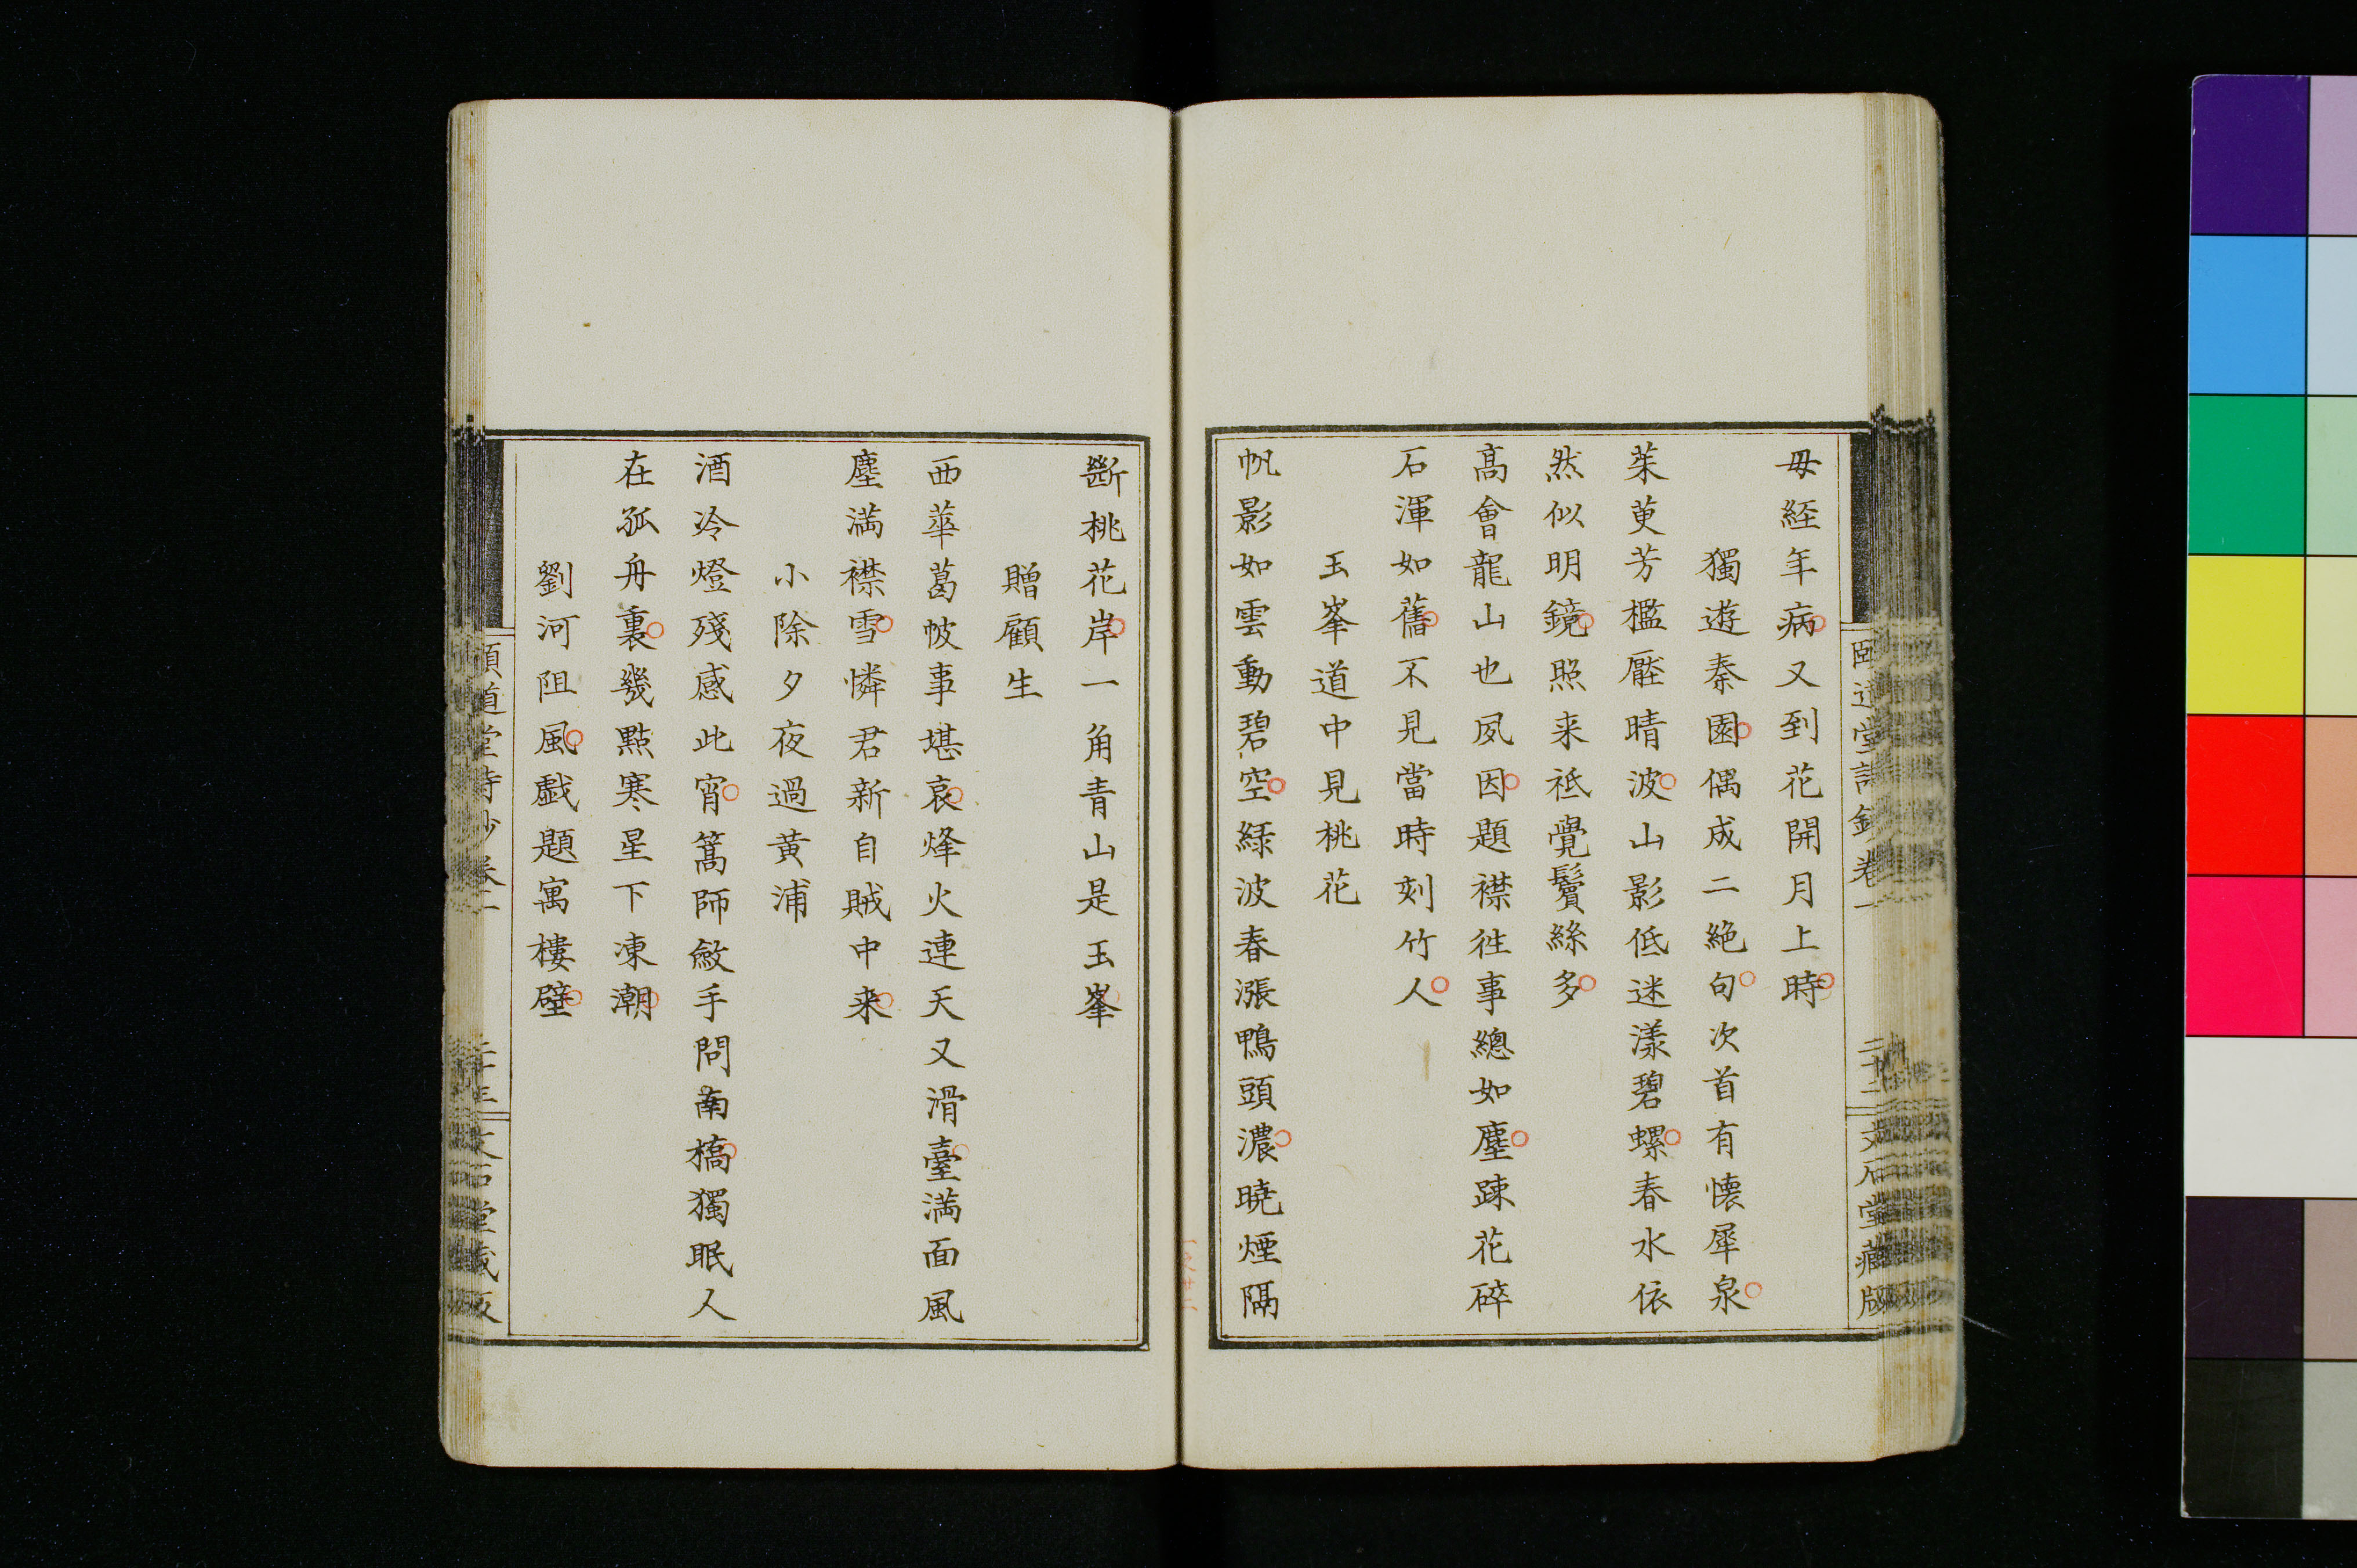 毋経年病又到花開月上時
獨遊秦園偶成二絶句次首有懐犀泉
茱萸芳檻壓晴波山影低迷漾碧螺春水依
然似明鏡照来祇覺鬢絲多
髙會龍山也夙因題襟徃事總如塵踈花碎
石渾如舊不見當時刻竹人
玉峯道中見桃花
帆影如雲動碧空緑波春漲鴨頭濃曉煙隔
斷桃花岸一角青山是玉峯
贈顧生
西華葛帔事堪哀烽火連天又滑臺満面風
塵満襟雪憐君新自賊中来
小除夕夜過黄浦
酒冷燈殘感此宵篙師斂手問南橋獨眠人
在孤舟裏幾點寒星下凍潮
劉河阻風戯題寓樓壁
道堂詩鈔卷一
二十二
文石堂藏版